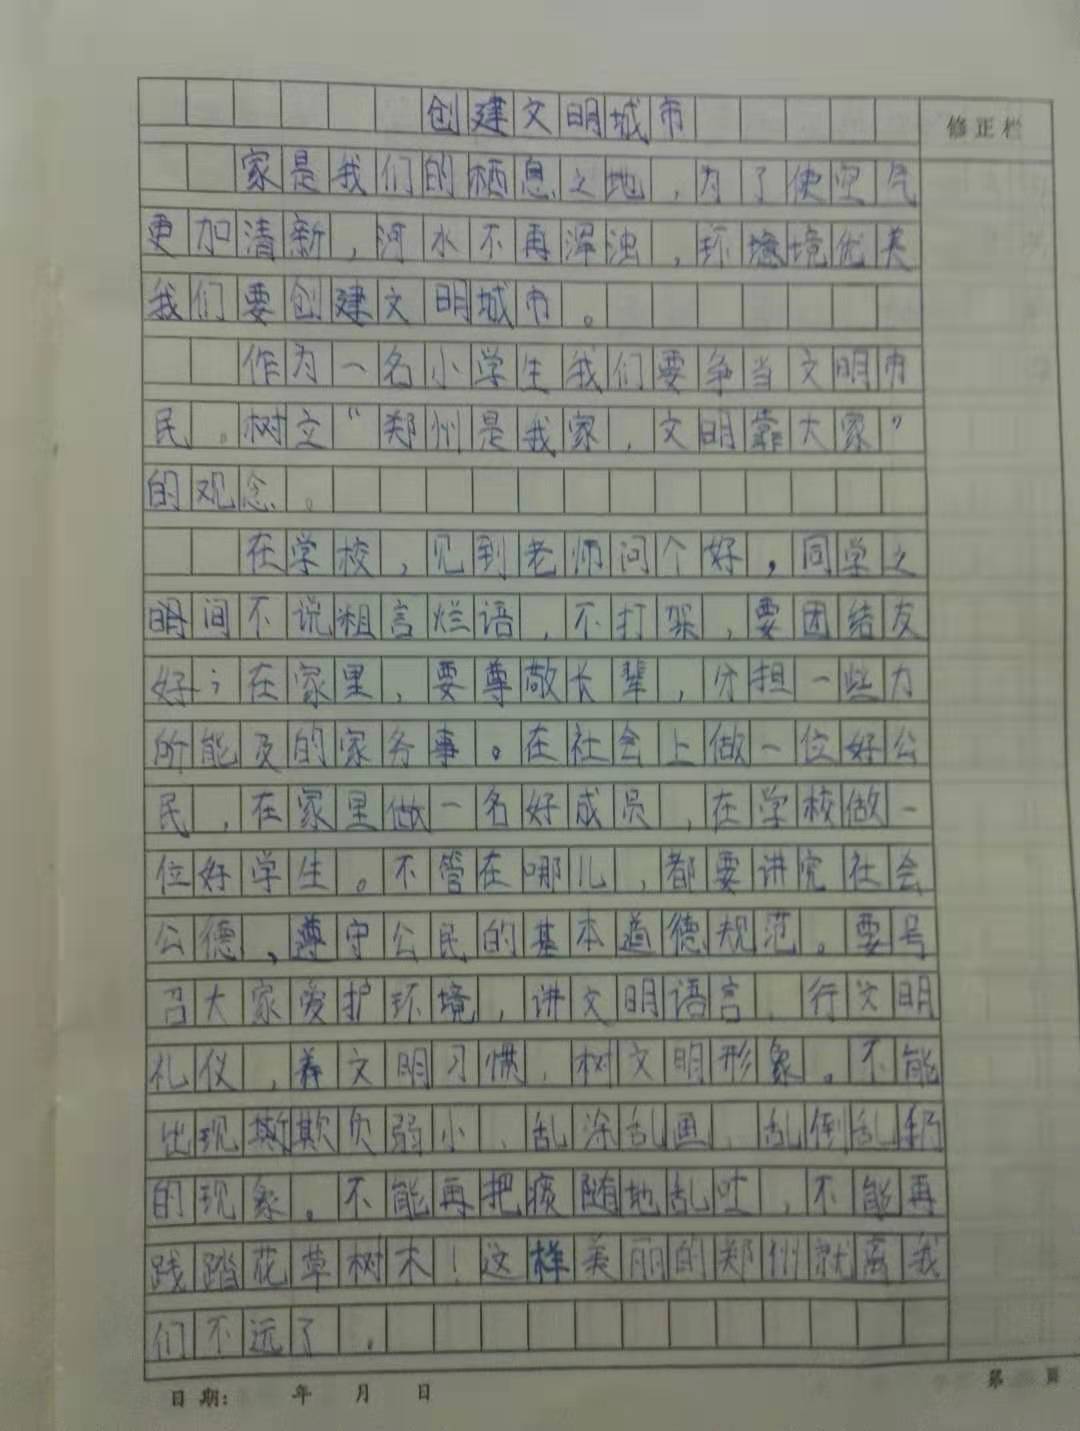 创建文明城市
修正栏
家是我们的栖息之地,为了使空气
更加清新,河水不再浑浊,环境境优美
我们要创建文明城市。
作为一名小学生我们要争当文明市
民。树立“郑州是我家,文明靠大家”
的观念。
在学校,见到老师问个好,同学之
明间不说粗言烂语,不打架,要团结友
好;在家里,要尊敬长辈,分担一些力
所能及的家务事。在社会上做一位好公
民,在家里做一名好成员,在学校做一
位好学生。不管在哪儿,都要讲究社会
公德、遵守公民的基本道德规范。要号
召大家爱护环境,讲文明语言,行文明
礼仪,养文明习惯,树文明形象。不能
出现欺负弱小、乱涂乱画、乱倒乱扔
的现象。不能再把痰随地乱吐,不能再
践踏花草树木!这样美丽的郑州就离我
们不远了。
日期: 年 月 日
第 页